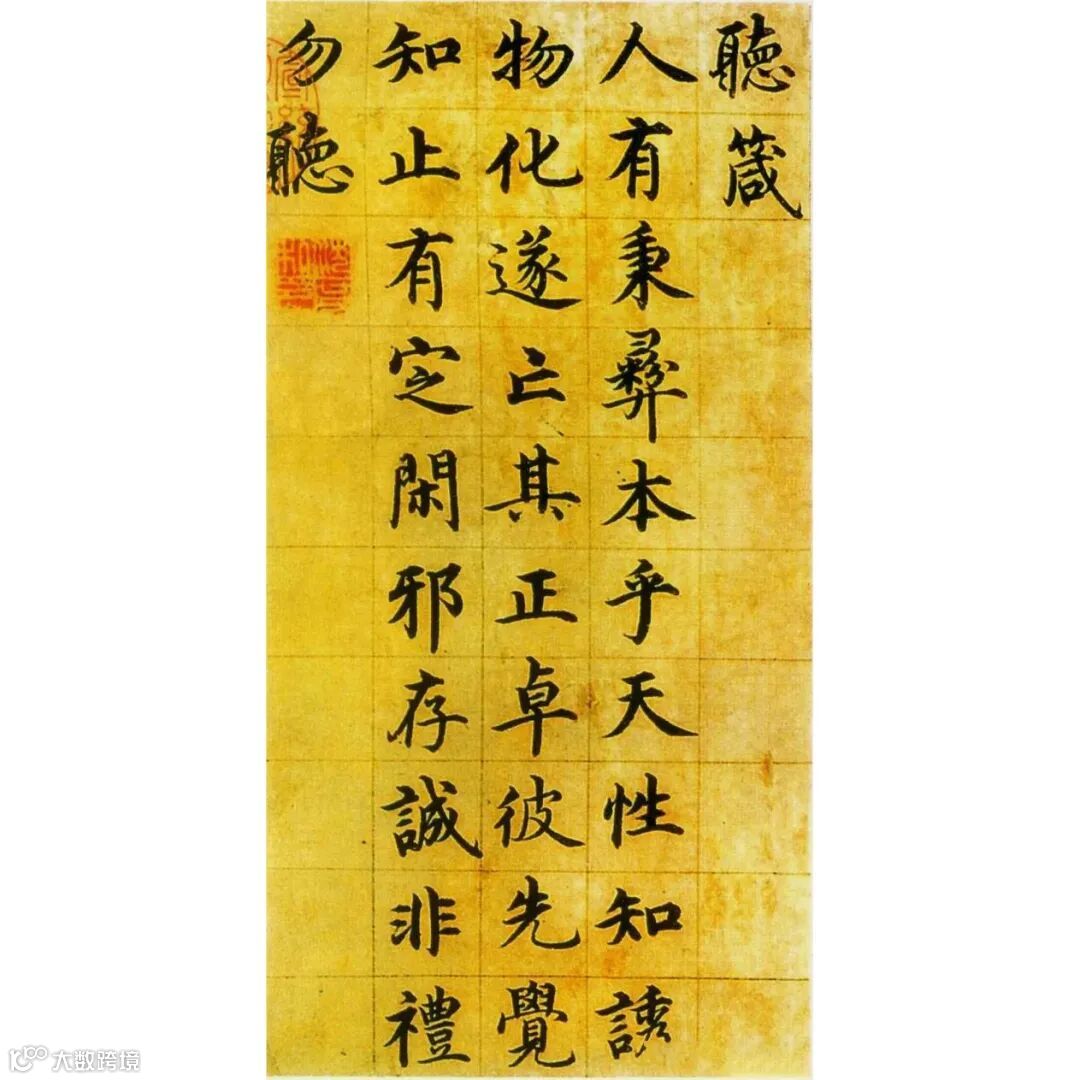 聽箴
人有秉彝本乎天性知誘
物化遂亡其正卓彼先覺
知止有定閑邪存誠非禮
勿聽
大数跨境